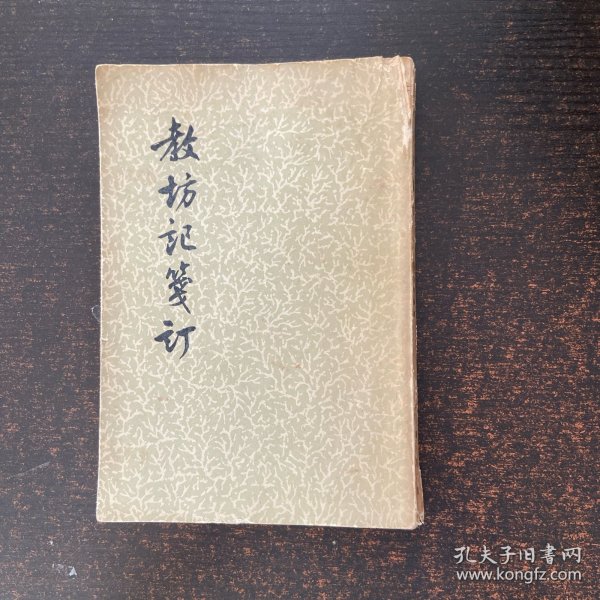 教坊記箋訂
孔夫子旧書网
www.kongfz.com